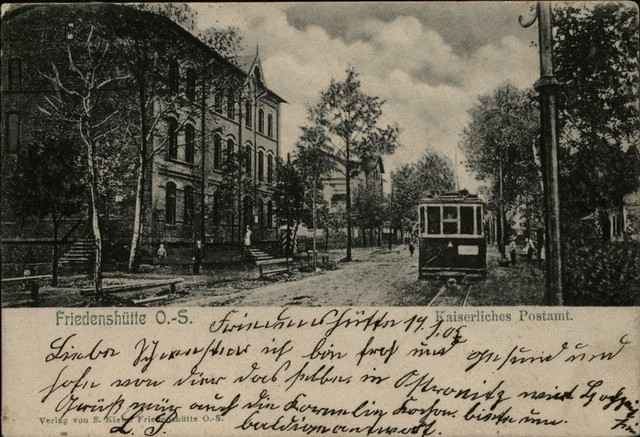 Friedenshütte O.-S.
Kaiserliches Postamt.
Friedenshütte 19.1.05
Liebe Schwester ich bin froh und gesund und
hofe von dier das selbe in Ostronitz wird
Grüß mir auch die Kornelin bitte um
baldige antwort.
Verlag von S. Friedenshütte O.-S.